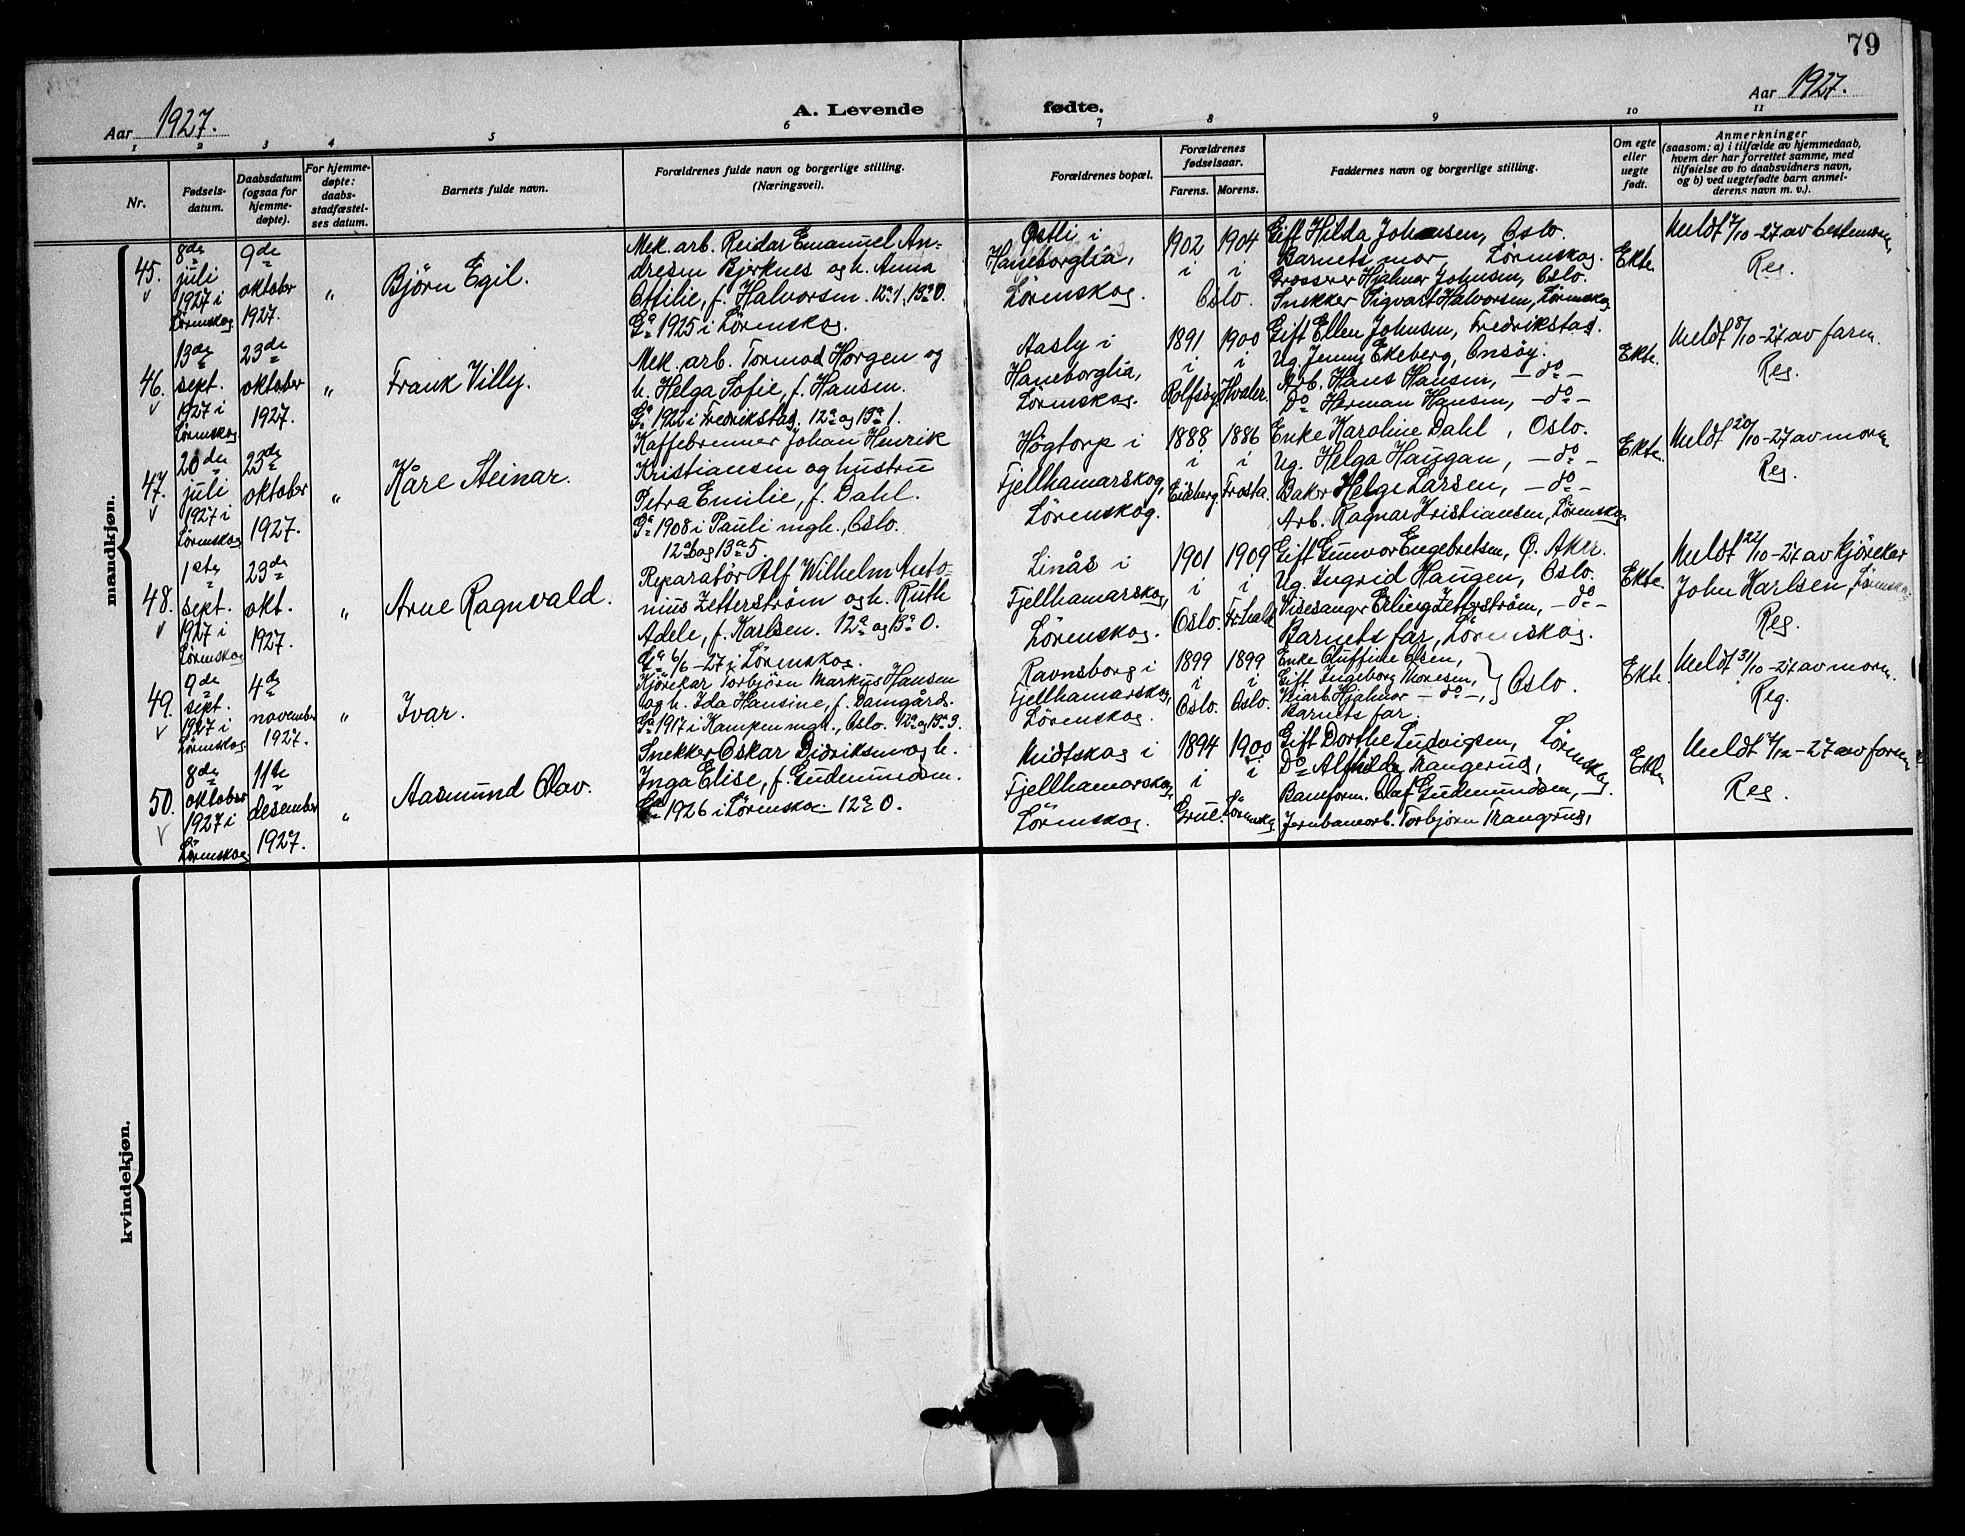 79
Aar 1927.
A. Levende fødte.
Aar 1927.
1 2 3 4 5 6 7 8 9 10 11
Nr.
Fødsels-
datum.
Daabsdatum
(ogsaa for
hjemme-
døpte).
For hjemme-
døpte:
daabs-
stadfæstel-
ses datum.
Barnets fulde navn.
Forældrenes fulde navn og borgerlige stilling.
(Næringsvei).
Forældrenes bopæl.
Forældrenes
fødselsaar.
Farens. Morens.
Faddernes navn og borgerlige stilling.
Om egte
eller
uegte
født.
Anmerkninger
(saasom: a) i tilfælde av hjemmedaab,
hvem der har forrettet samme, med
tilføielse av to daabsvidners navn,
og b) ved uegtefødte barn anmel-
derens navn m. v.).
mandkjøn.
45.
8de
juli
1927 i
Lörenskog
9de
oktober
1927.
"
Björn Egil.
Mek. arb. Reidar Emanuel An-
dresen Bjerknes og h. Anna
Otilie, f. Halvorsen. 12a 1, 13a 0.
Ga 1925 i Lörenskog.
Östli i
Haneborglia,
Lörenskog.
1902 1904
i i
Oslo.
Gift Hilda Johnsen, Oslo.
Barnets mor, Lörenskog.
Grosserer Hjalmar Johnsen, Oslo.
Snekker Sigvart Halvorsen, Lörenskog
Ekte.
Meldt 7/10-27 av bestemoren
Reg.
46.
13de
sept.
1927 i
Lörenskog
23de
oktober
1927.
"
Frank Villy.
Mek. arb. Tormod Horgen og
h. Helga Sofie, f. Hansen.
Ga 1921 i Fredrikstad. 12a og 13a 1.
Aasly i
Haneborglia,
Lörenskog.
1891 1900
i i
Rolfsöy Hvaler.
Gift Ellen Johnsen, Fredrikstad.
Ug. Jenny Ekeberg, Onsöy.
Arb. Hans Hansen, -do-
Do Herman Hansen, -do-
Ekte.
Meldt 8/10-27 av faren.
Reg.
47.
20de
juli
1927 i
Lörenskog
23de
oktober
1927.
"
Kåre Steinar.
Kaffebrenner Johan Henrik
Kristiansen og hustru
Petra Emilie, f. Dahl.
Ga 1908 i Pauli mgh., Oslo.
12a 6 og 13a 5.
Högtorp i
Fjellhamarskog,
Lörenskog.
1888 1886
i i
Eidsberg. Frosta.
Enke Karoline Dahl, Oslo.
Ug. Helga Haugan, -do-
Baker Helge Larsen, -do-
Arb. Ragnar Kristiansen, Lörenskog
Ekte.
Meldt 20/10-27 av moren
Reg.
48.
1ste
sept.
1927 i
Lörenskog
23de
okt.
1927.
"
Arne Ragnvald.
Reparatör Alf Wilhelm Anto-
nius Zetterström og h. Ruth
Adele, f. Karlsen. 12a og 13a 0.
Ga 6/6-27 i Lörenskog.
Linås i
Fjellhamarskog,
Lörenskog.
1901 1909
i i
Oslo. Fr.hald
Gift Gunvor Engebretsen, Ö. Aker.
Ug. Ingrid Haugen, Oslo.
Visesanger Erling Zetterström, -do-
Barnets far, Lörenskog.
Ekte.
Meldt 22/10-27 av kjörekar
John Karlsen, Lörenskog.
Reg.
49.
9de
sept.
1927 i
Lörenskog
4de
november
1927.
"
Ivar.
Kjörekar Torbjörn Markus Hansen
og h. Ida Hansine, f. Damgård.
Ga 1917 i Kampen mgh., Oslo. 12a og 13a 3.
Ravnsborg i
Fjellhamarskog,
Lörenskog.
1899 1899
i i
Oslo. Oslo.
Enke Olsen,
Gift Ingeborg
Hjalmar -do-, Oslo.
Barnets far.
Ekte.
Meldt 31/10-27 av moren.
Reg.
50.
8de
oktober
1927 i
Lörenskog
11te
desember
1927.
"
Aasmund Olav.
Snekker Oskar Didriksen og h.
Inga Elise, f. Gudmundsen.
Ga 1926 i Lörenskog. 12a 0.
Midtskog i
Fjellhamarskog,
Lörenskog.
1894 1900
i i
Grue. Lörenskog
Gift Dorthe Ludvigsen, Lörenskog.
Do Alfhilda Trangerud,
Baneform. Olaf Gudmundsen,
Jernbanearb. Torbjörn Trangrud,
Ekte
Meldt /12-27 av faren
Reg.
kvindekjøn.